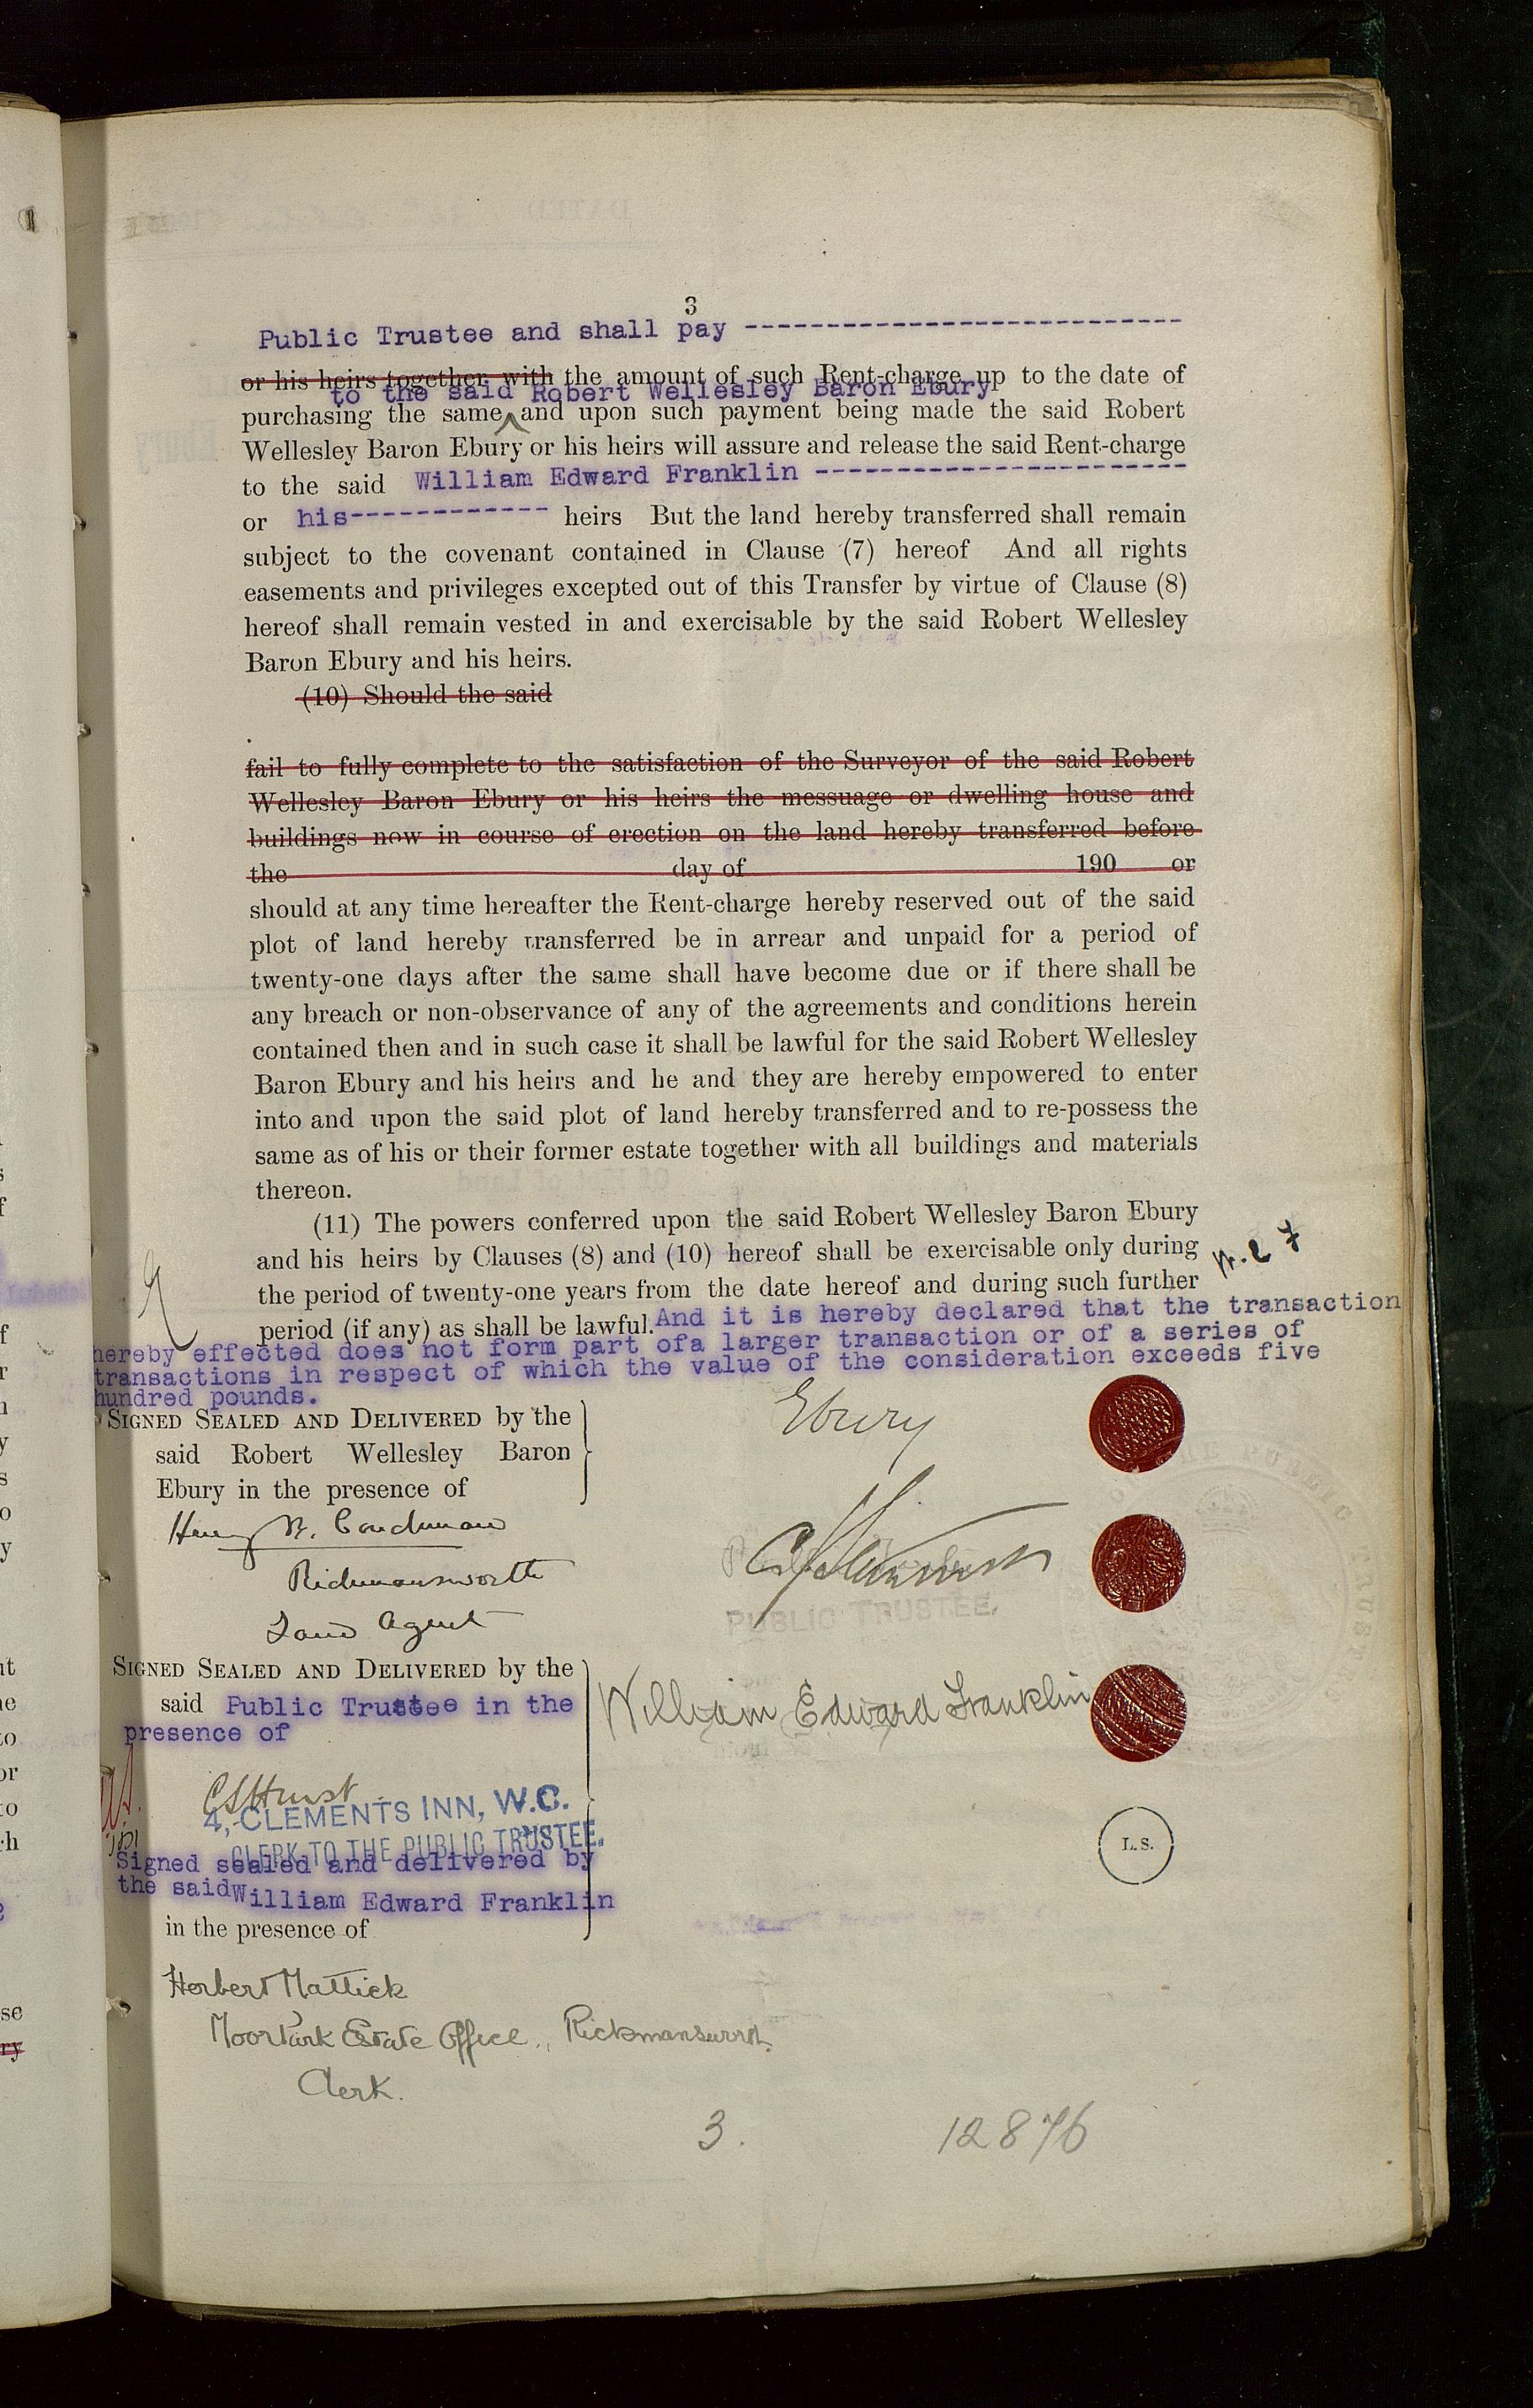 3
Public Trustee and shall pay ---------------------------
or his heirs together with the amount of such Rent-charge up to the date of
to the said Robert Wellesley Baron Ebury
purchasing the same and upon such payment being made the said Robert
Wellesley Baron Ebury or his heirs will assure and release the said Rent-charge
to the said William Edward Franklin -----------------------
or his------------ heirs But the land hereby transferred shall remain
subject to the covenant contained in Clause (7) hereof And all rights
easements and privileges excepted out of this Transfer by virtue of Clause (8)
hereof shall remain vested in and exercisable by the said Robert Wellesley
Baron Ebury and his heirs.
(10) Should the said
fail to fully complete to the satisfaction of the Surveyor of the said Robert
Wellesley Baron Ebury or his heirs the messuage or dwelling house and
buildings now in course of erection on the land hereby transferred before
the day of 190 or
should at any time hereafter the Rent-charge hereby reserved out of the said
plot of land hereby transferred be in arrear and unpaid for a period of
twenty-one days after the same shall have become due or if there shall be
any breach or non-observance of any of the agreements and conditions herein
contained then and in such case it shall be lawful for the said Robert Wellesley
Baron Ebury and his heirs and he and they are hereby empowered to enter
into and upon the said plot of land hereby transferred and to re-possess the
same as of his or their former estate together with all buildings and materials
thereon.
(11) The powers conferred upon the said Robert Wellesley Baron Ebury
and his heirs by Clauses (8) and (10) hereof shall be exercisable only during
the period of twenty-one years from the date hereof and during such further
period (if any) as shall be lawful. And it is hereby declared that the transaction
hereby effected does not form part ofa larger transaction or of a series of
transactions in respect of which the value of the consideration exceeds five
hundred pounds.
SIGNED SEALED AND DELIVERED by the
said Robert Wellesley Baron
Ebury in the presence of
Ebury
Rickmansworth
Land Agent
PUBLIC TRUSTEE.
SIGNED SEALED AND DELIVERED by the
said Public Trustee in the
presence of
William Edward Franklin
CSHurst
4, CLEMENTS INN, W.C.
CLERK TO THE PUBLIC TRUSTEE.
L.S.
Signed sealed and delivered by
the said William Edward Franklin
in the presence of
Herbert Mattick
Moor Park Estate Office, Rickmansworth.
Clerk.
3. 12876